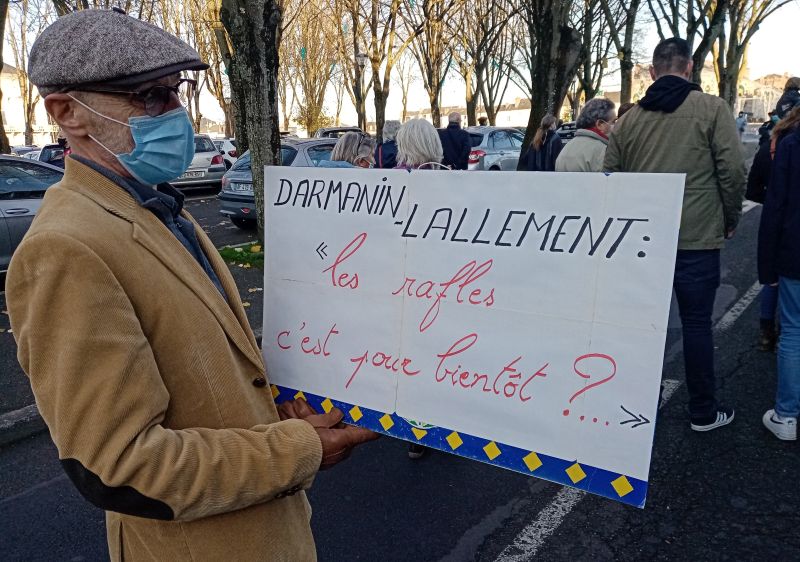 DARMANIN-LALLEMENT :
« les rafles
c'est pour bientôt ?.... »